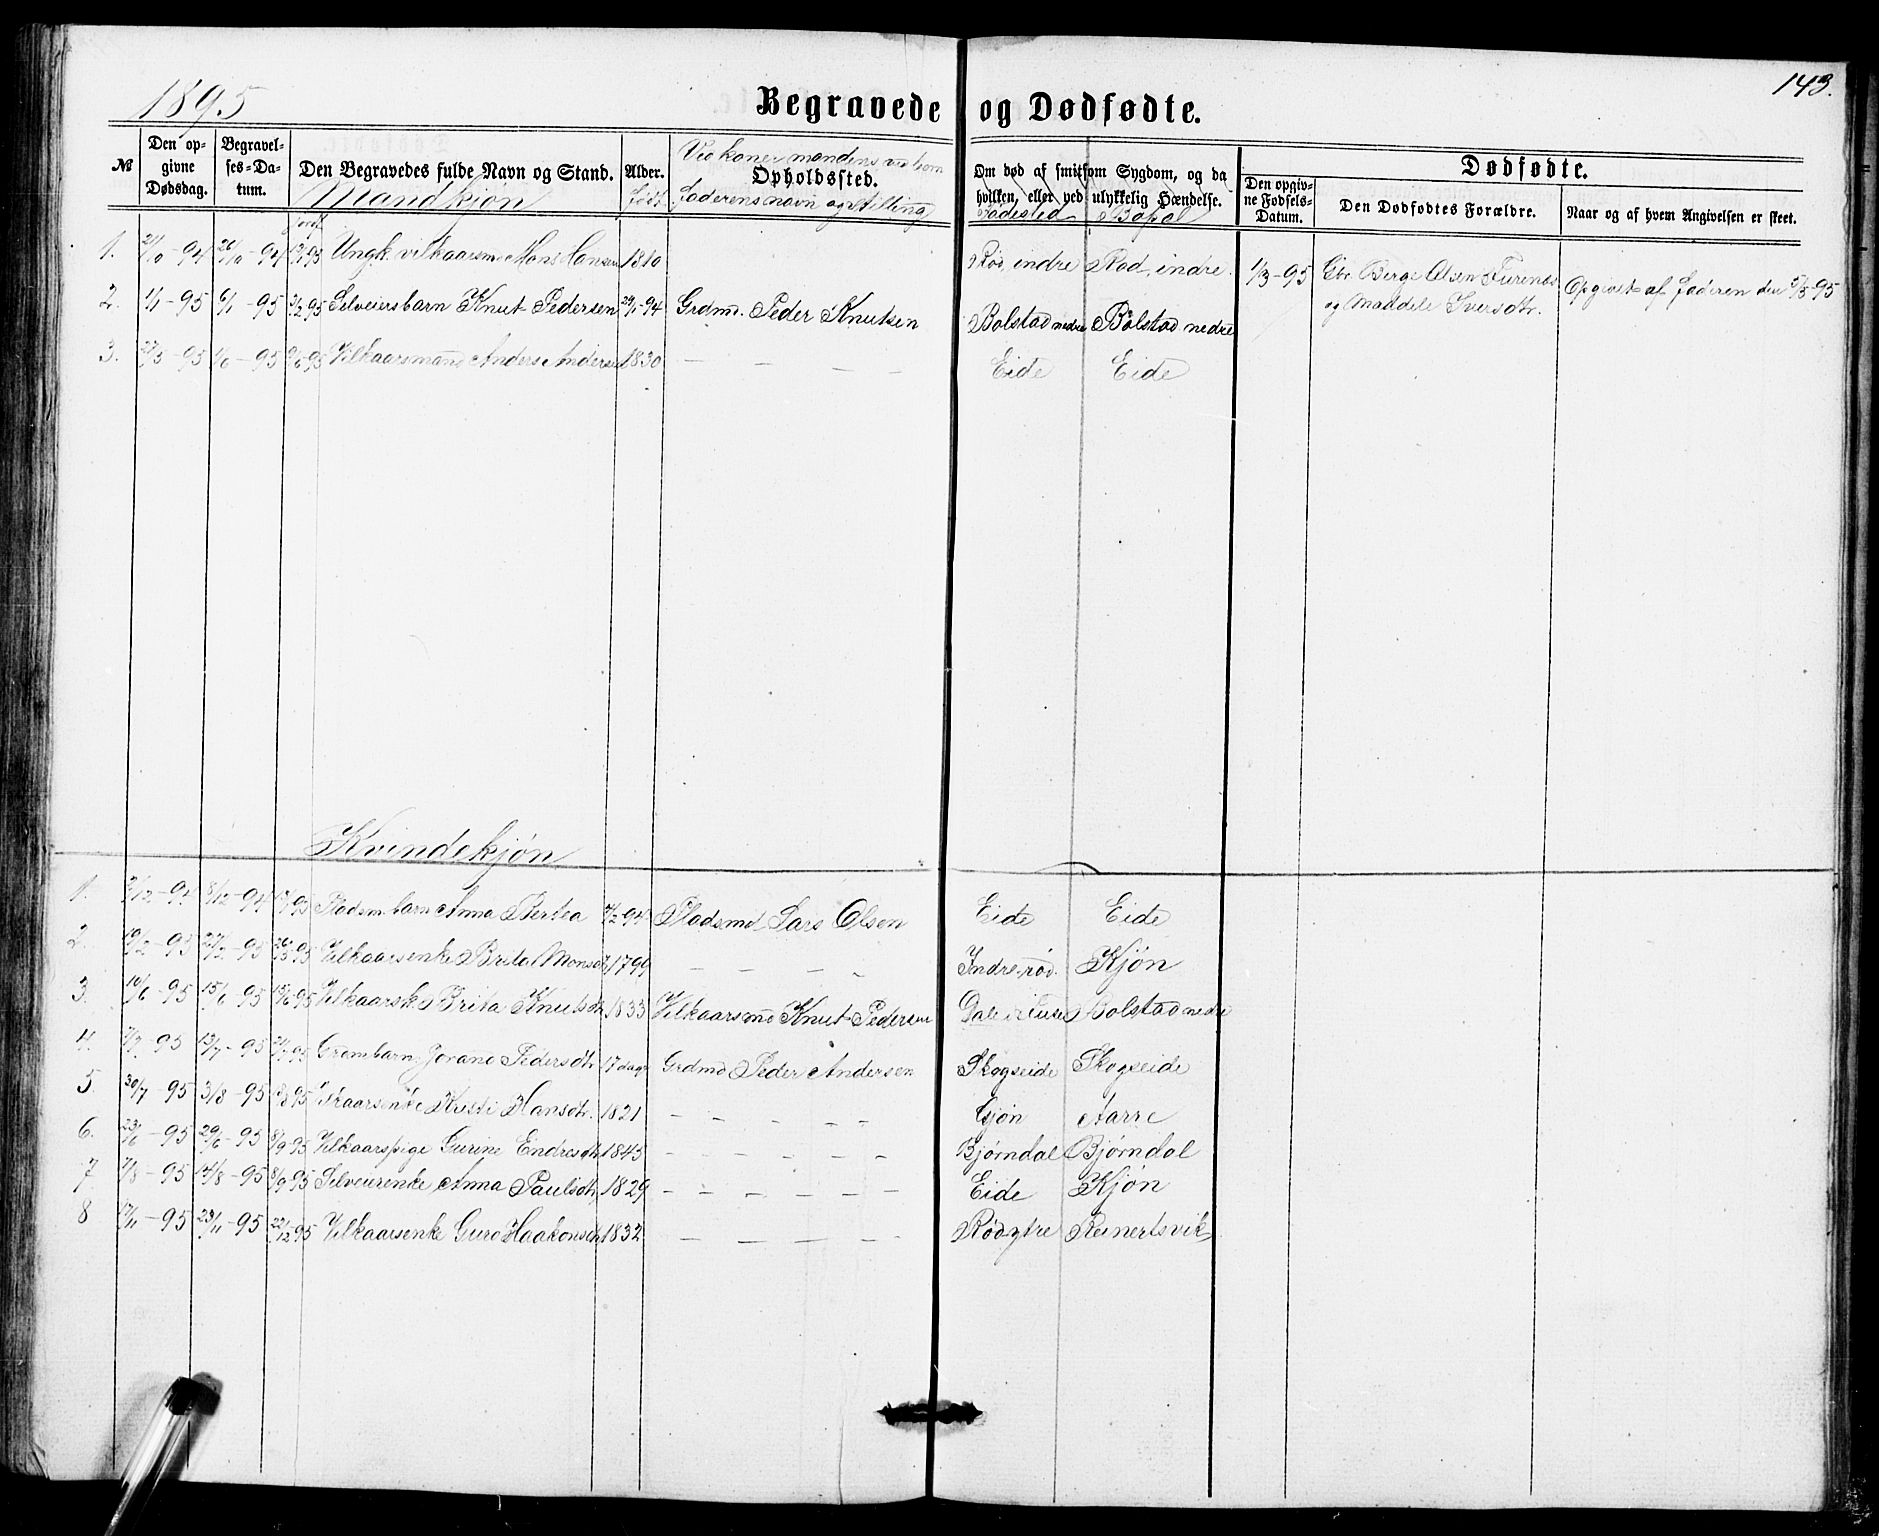 1895
Begravede og Dødfødte.
143.
№
Den opgivne Dødsdag.
Begravelses-Datum.
Den Begravedes fulde Navn og Stand.
Mandkjøn
Alder.
født
Ved koner mandens ved barn
Opholdssted.
faderens navn og stilling
Om død af smitsom Sygdom, og da
hvilken, eller ved ulykkelig Hændelse.
Fødested Bopæl
Dødfødte.
Den opgivne Fødsels-Datum.
Den Dødfødtes Forældre.
Naar og af hvem Angivelsen er skeet.
1. 21/10-94 26/10-94 Ungk. vilkaarsm. Mons Hansen 1810 Rød, indre Rød, indre.
1/3-95 Gbr. Berge Olsen Furenæs og Maddele Iversdtr. Opgivet af faderen den 5/3-95
2. 1/1-95 6/1-95 3/2 95 Selveiersbarn Knut Pedersen 29/11-94 Grdmd. Peder Knutsen Bolstad nedre Bolstad nedre
3. 27/5-95 1/6-95 9/6 95 Vilkaarsmand Anders Andersen 1830 — — — — Eide Eide
Kvindekjøn
1. 2/12-94 8/12-94 Pladsm.barn Anna Bertea 4/2 94 Pladsmd Lars Olsen Eide Eide
2. 19/2-95 27/2-95 Vilkaarsenke Brita Monsdtr 1799 — — — — Indre-rød. Kjøn
3. 10/6-95 15/6-95 Vilkaarsk. Brita Knutsdtr 1833 Vilkaarsmd Knut Pedersen Dale i Bolstad nedre
4. 7/7-95 13/7-95 Grdm.barn Jorand Pedersdtr. 17 dage Grdmd Peder Andersen Skogseide Skogseide
5. 30/7-95 3/8-95 Vilkaarsenke Kristi Hansdtr. 1821 — — — — — Gjøn Aarre
6. 23/6-95 29/6-95 8/9 95 Vilkaarspige Gurine Eindresdtr 1843 — — — — — — Bjørndal Bjørndal
7 7/8-95 14/8-95 8/9 95 Selveierenke Anna Paulsdtr 1829 — — — — — — Eide Kjøn
8 17/11-95 23/11-95 22/12 95 Vilkaarsenke Guro Haakonsdtr 1832 — — — — — Rød ytre Reinertsvik